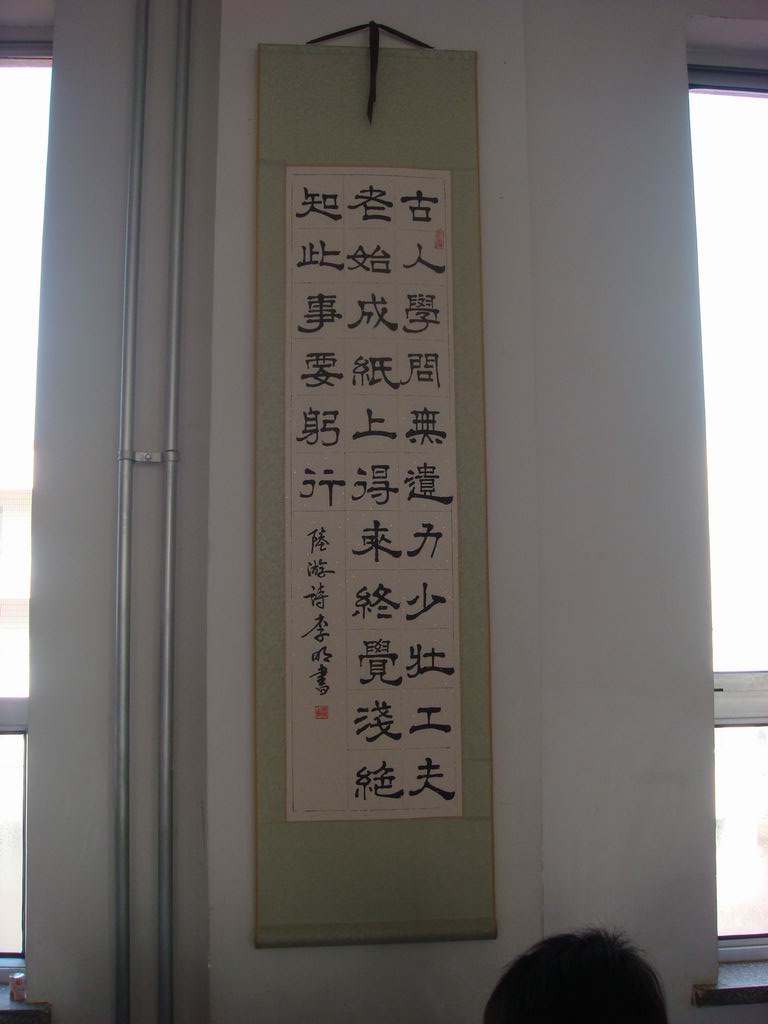 古人學問無遺力少壯工夫
老始成紙上得來終覺淺絕
知此事要躬行
陸游詩李明書